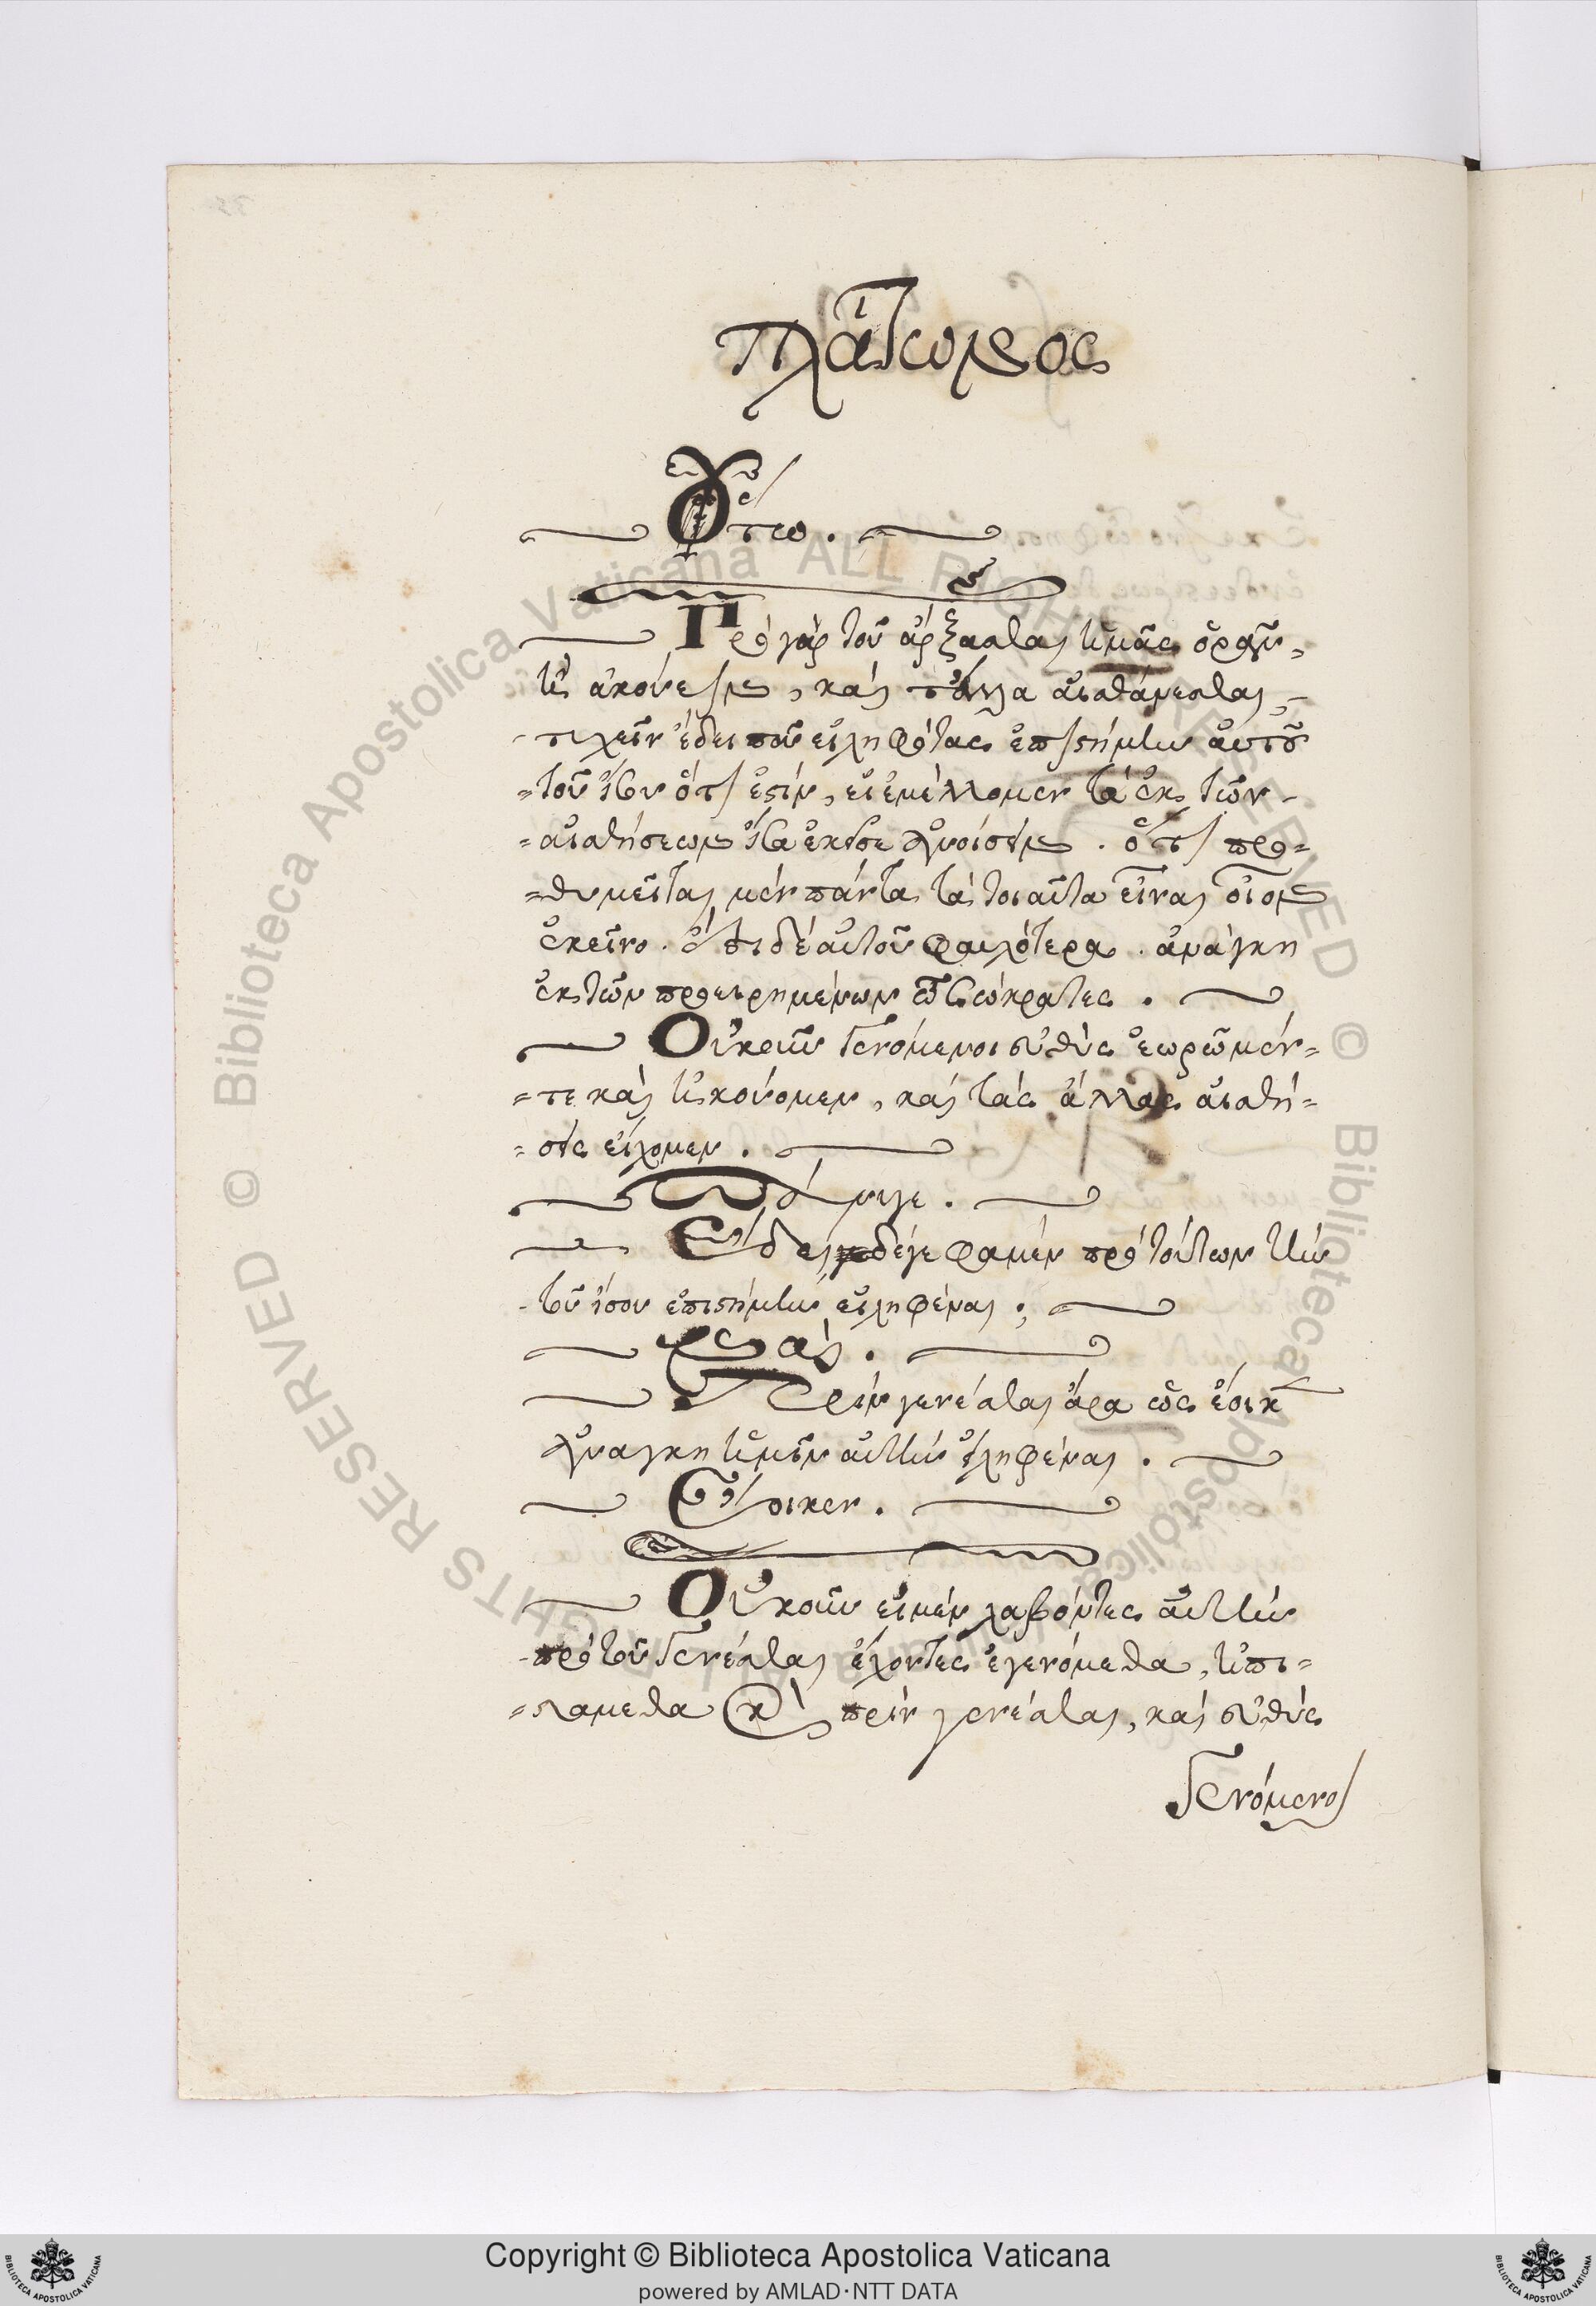 πλάτωνος
Οὕτω.
Πρὸ γὰρ τοῦ ἄρξασθαι ἡμᾶς ὁρᾶν
ἢ ἀκούειν, καὶ τἄλλα αἰσθάνεσθαι,
τυχεῖν ἔδει που εἰληφότας ἐπιστήμην αὐτοῦ
τοῦ ἴσου ὅτι ἐστὶν, εἰ ἐμέλλομεν τὰ ἐκ τῶν
αἰσθήσεων ἴσα ἐκεῖσε ἀνοίσειν. ὅτι προ=
=θυμεῖται μὲν πάντα τὰ τοιαῦτα εἶναι οἷον
ἐκεῖνο. ἔστι δὲ αὐτοῦ φαυλότερα. ἀνάγκη
ἐκ τῶν προειρημένων ὦ Σώκρατες.
Οὐκοῦν γενόμενοι εὐθὺς ἑωρῶμέν=
=τε καὶ ἠκούομεν, καὶ τὰς ἄλλας αἰσθή=
=σεις εἴχομεν.
Πάνυ γε.
Ἔδει δέ γε φαμὲν πρὸ τούτων τὴν
τοῦ ἴσου ἐπιστήμην εἰληφέναι;
Ναί.
Πρὶν γενέσθαι ἄρα ὡς ἔοικε
ἀνάγκη ἡμῖν αὐτὴν εἰληφέναι.
Ἔοικεν.
Οὐκοῦν εἰ μὲν λαβόντες αὐτὴν
πρὸ τοῦ γενέσθαι ἔχοντες ἐγενόμεθα, ἠπι=
=στάμεθα καὶ πρὶν γενέσθαι, καὶ εὐθὺς
γενόμενοι
© Biblioteca Apostolica Vaticana ALL RIGHTS RESERVED © Biblioteca Apostolica Vaticana ALL RIGHTS RESERVED
Copyright © Biblioteca Apostolica Vaticana
powered by AMLAD・NTT DATA
BIBLIOTECA APOSTOLICA VATICANA
BIBLIOTECA APOSTOLICA VATICANA